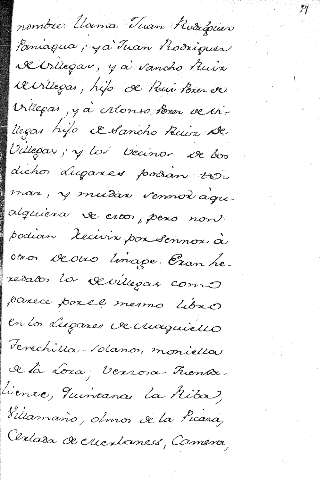 nombre: llama Juan Rodriguez
Paniagua; y à Juan Rodriguez
de Villegas, y à Sancho Ruiz
de Villegas, hijo de Rui Perez de
Villegas, y à Alonso Perez de Vi-
llegas hijo de Sancho Ruiz de
Villegas; y los vecinos de los
dichos Lugares podian to-
mar, y mudar sennor à qu-
alquiera de estos, pero non
podian recivir por sennor à
otros de otro linage. Eran he-
redados los de Villegas como
parece por el mesmo libro
en los Lugares de
Terechilla. Solanos, moniella
de la Loza, Fuenca-
liente, Quintana la Riba,
Villamaño, olmos de la Picaza,
Celada de Camena,